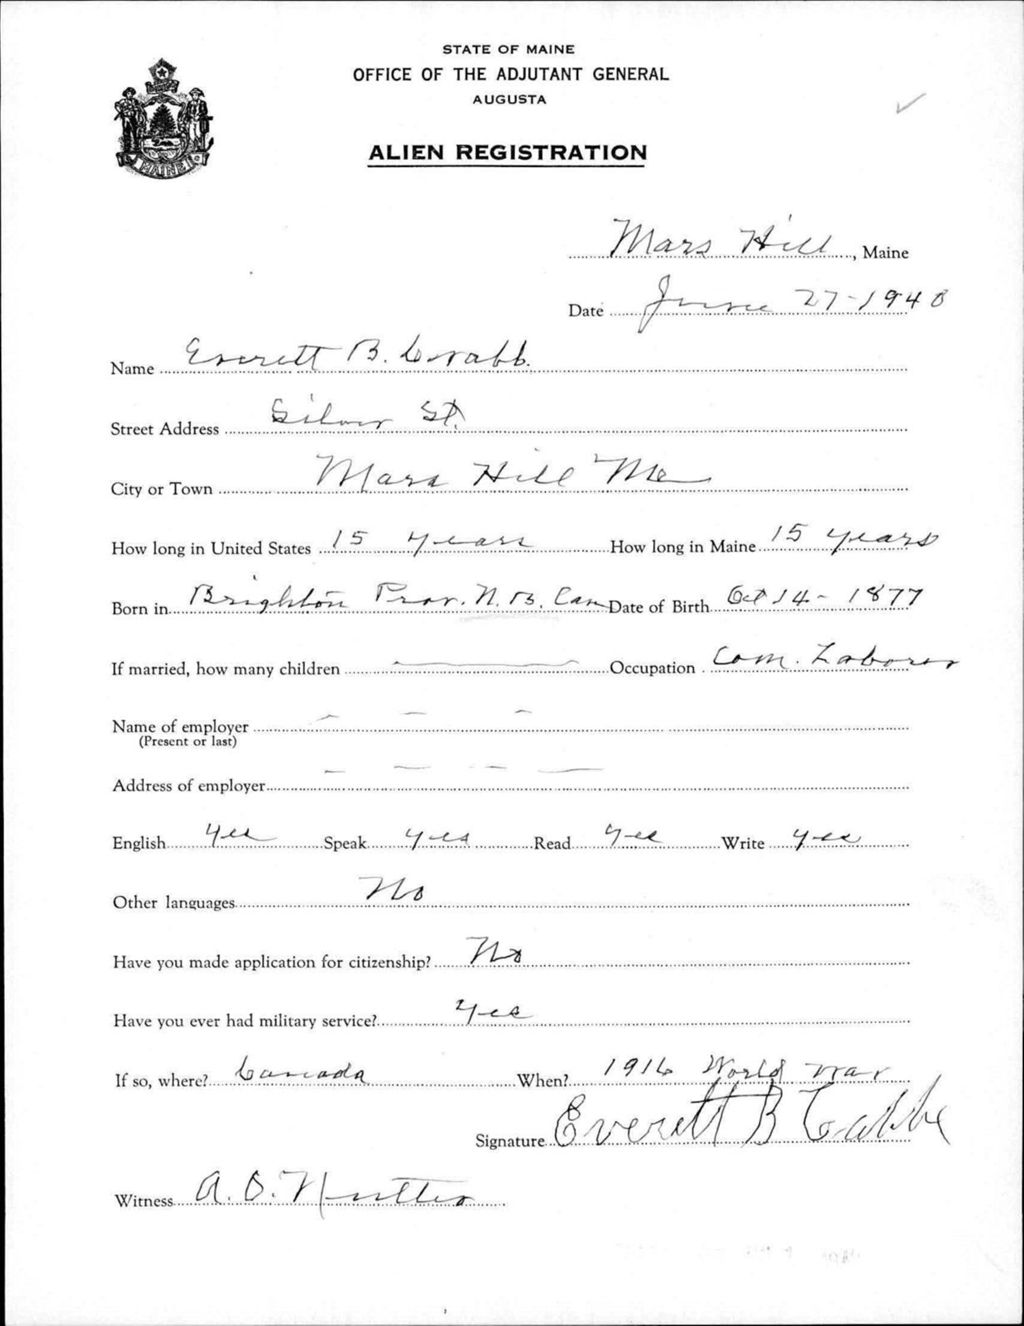 STATE OF MAINE
OFFICE OF THE ADJUTANT GENERAL
AUGUSTA
ALIEN REGISTRATION
MAINE
Mars Hill, Maine
Date June 27-1940
Name Everett B. Crabb.
Street Address Silver St.
City or Town Mars Hill Me
How long in United States 15 years How long in Maine 15 years
Born in Brighton Prov. N. B. Can Date of Birth Oct 14 - 1877
If married, how many children — Occupation Com. Laborer
Name of employer — — —
(Present or last)
Address of employer — — — —
English yes Speak yes Read yes Write yes
Other languages No
Have you made application for citizenship? No
Have you ever had military service? yes
If so, where? Canada When? 1916 World War
Signature Everett B
Witness A. O.